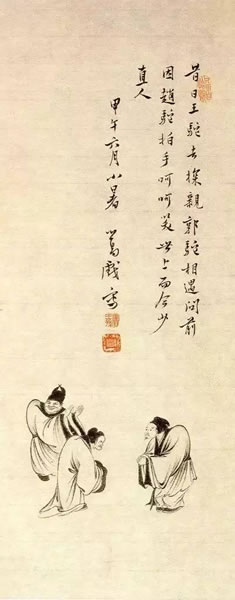 昔日王駝去探親郭駝相遇問前
因趙駝拍手呵呵笑世上而今少
真人
甲午六月小暑 戲寫